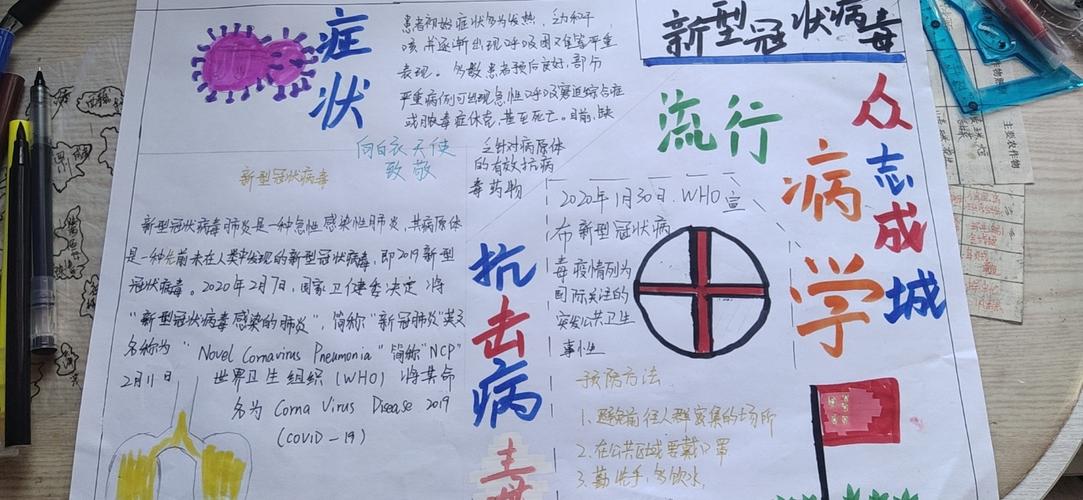 新型冠状病毒
症状
患者初始症状多为发热、乏和干
咳,并逐渐出现呼吸困难等严重
表现。多数患者预后良好,部分
严重病例可出现急性呼吸窘迫综合症
或脓毒症休克,甚至死亡。目前,缺
乏针对病原体
的有效抗病
毒药物
向白衣天使
致敬
新型冠状病毒
新型冠状病毒肺炎是一种急性感染性肺炎,其病原体
是一种先前未在人类中发现的新型冠状病毒,即2019新型
冠状病毒。2020年2月7日,国家卫健委决定将
"新型冠状病毒感染的肺炎",简称"新冠肺炎"英文
名称为"Novel Cornavirus Pneumonia"简称"NCP"
2月11日 世界卫生组织(WHO)将其命
名为 Corna Virus Disease 2019
(COVID-19)
抗击病
流行
病学
2020年1月30日.WHO宣
布新型冠状病
毒疫情列为
国际关注的
突发公共卫生
事件
众志成城
预防方法
1.避免前往人群密集的场所
2.在公共区域要戴口罩
3.勤洗手,多饮水,
主要农作物